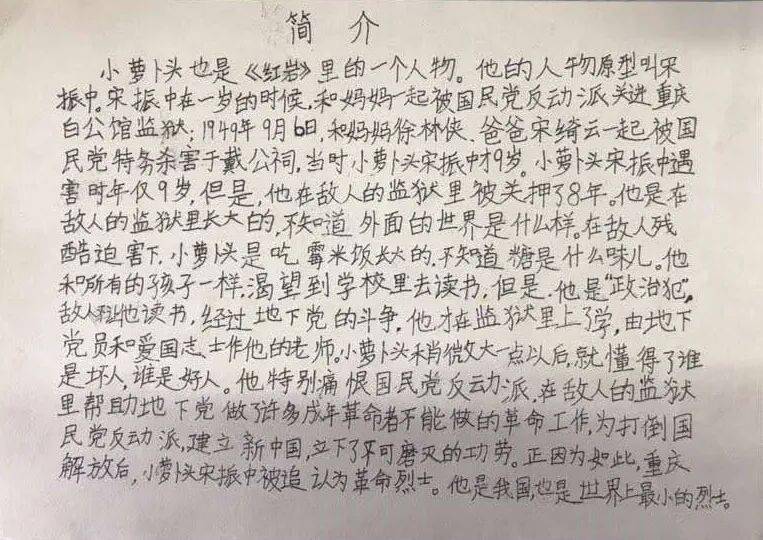 简 介
小萝卜头也是《红岩》里的一个人物。他的人物原型叫宋
振中。宋振中在一岁的时候,和妈妈一起被国民党反动派关进重庆
白公馆监狱;1949年9月6日,和妈妈徐林侠、爸爸宋绮云一起被国
民党特务杀害于戴公祠,当时小萝卜头宋振中才9岁。小萝卜头宋振中遇
害时年仅9岁,但是,他在敌人的监狱里被关押了8年。他是在
敌人的监狱里长大的,不知道外面的世界是什么样。在敌人残
酷迫害下,小萝卜头是吃霉米饭长大的,不知道糖是什么味儿。他
和所有的孩子一样,渴望到学校里去读书,但是,他是“政治犯”,
敌人不让他读书,经过地下党的斗争,他才在监狱里上了学,由地下
党员和爱国志士作他的老师。小萝卜头稍微大一点以后,就懂得了谁
是坏人,谁是好人。他特别痛恨国民党反动派,在敌人的监狱
里帮助地下党做了许多成年革命者不能做的革命工作,为打倒国
民党反动派,建立新中国,立下了不可磨灭的功劳。正因为如此,重庆
解放后,小萝卜头宋振中被追认为革命烈士。他是我国,也是世界上最小的烈士。